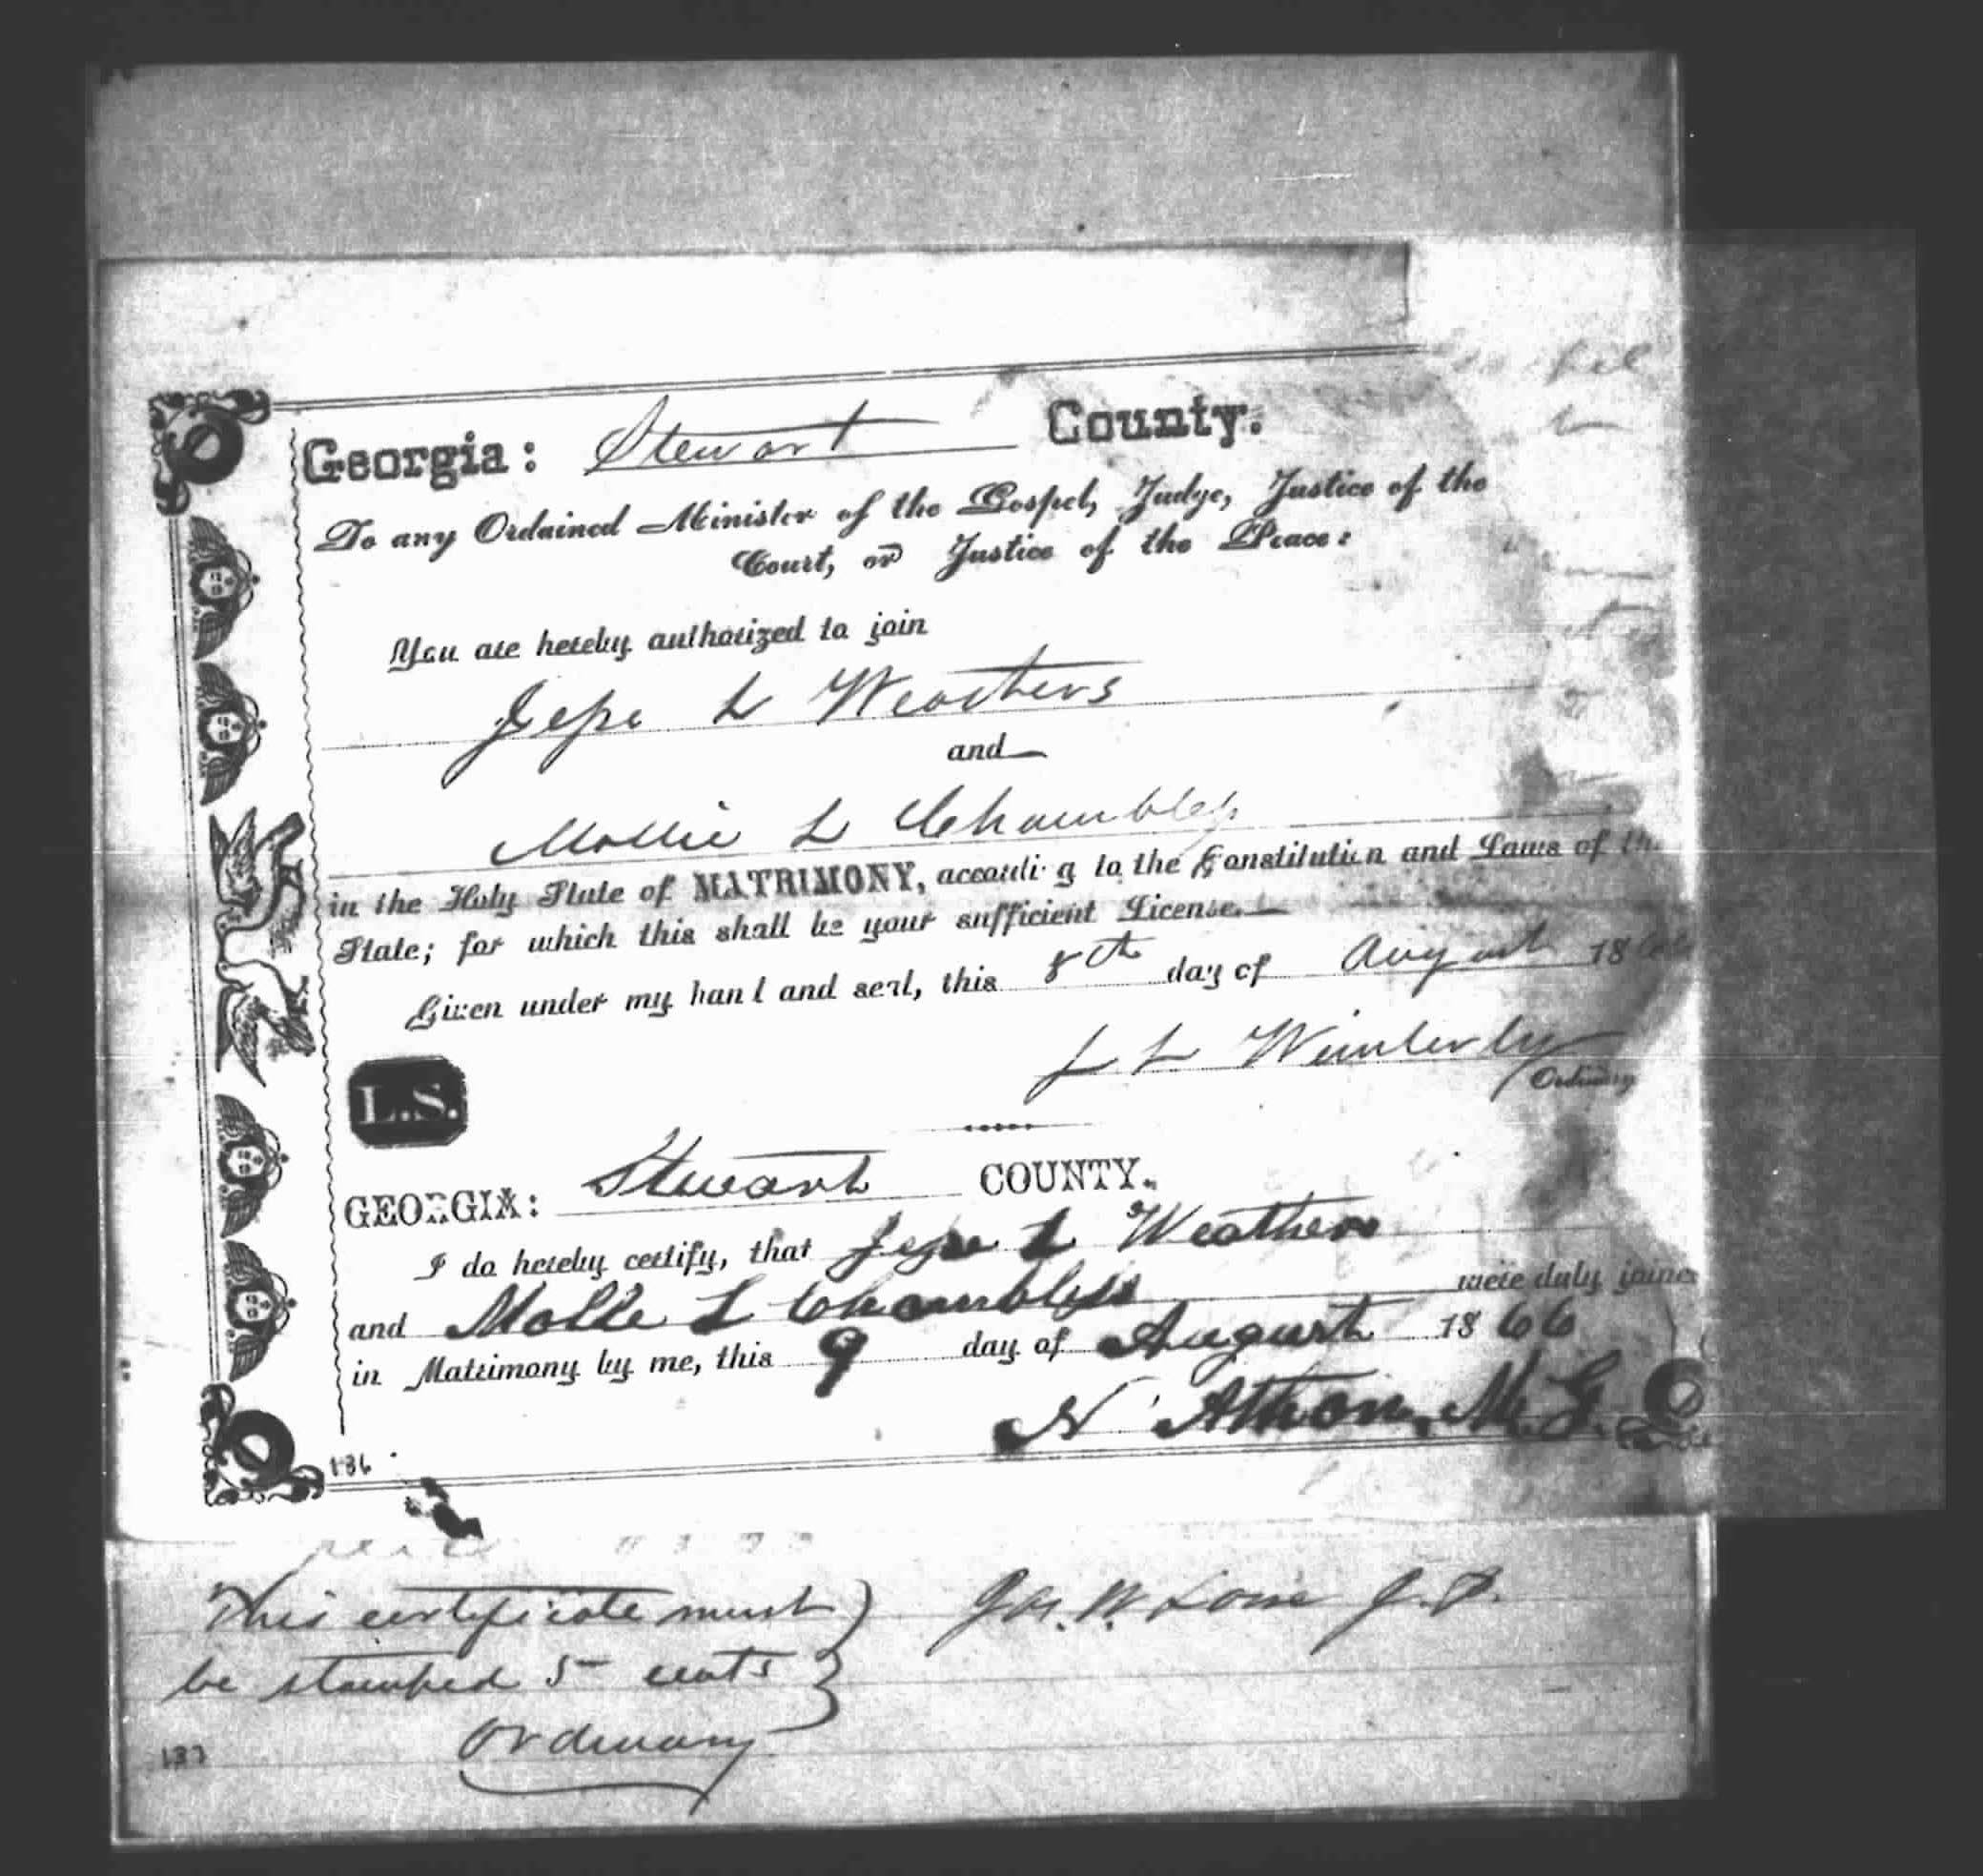 Georgia: Stewart County.
To any Ordained Minister of the Gospel, Judge, Justice of the
Court, or Justice of the Peace:
You are hereby authorized to join
Jesse L Weathers
and
Mollie L Chambless
in the Holy State of MATRIMONY, according to the Constitution and Laws of th
State; for which this shall be your sufficient License.
Given under my hand and seal, this 8th day of August 1866
J L Wimberly
Ordinary
L.S.
GEORGIA: Stewart COUNTY.
I do hereby certify, that Jesse L Weathers
and Mollie L Chambless were duly joine
in Matrimony by me, this 9 day of August 1866
N Athon, M. G.
136
This certificate must
be stamped 5 cents
Ordinary
Jas. W. Lowe J. P.
137